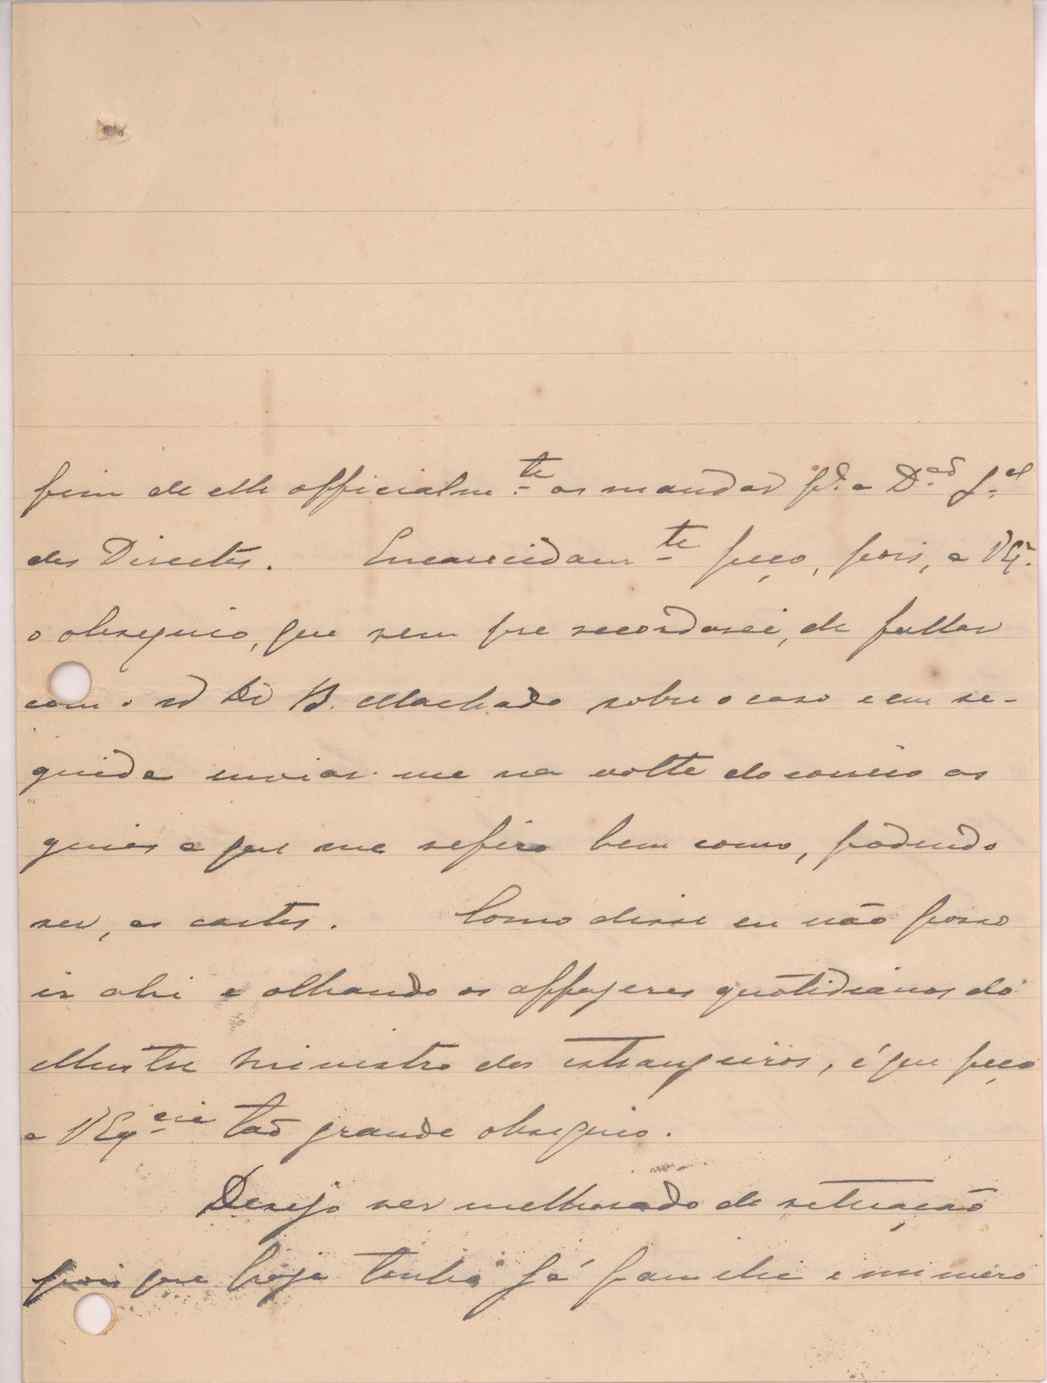 fim de elle officialm.te os mandar p.a a D.ão G.al
dos Directos. Encarecidam.te peço, pois, a VEx.
o obsequio, que sempre recordarei, de fallar
com o sr Dr B. Machado sobre o caso e em se-
guida enviar-me na volta do correio as
guias a que me refiro bem como, podendo
ser, as cartas. Como disse eu não posso
ir ahi e olhando os affazeres quotidianos do
illustre ministro dos estrangeiros, é que peço
a VEx.cia tão grande obsequio.
Desejo ser melhorado de situação
pois que hoje tenho já familia e